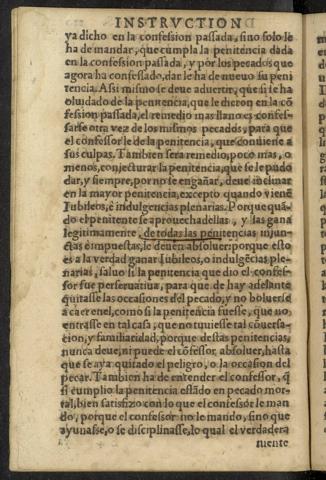 INSTRVCTION
ya dicho en la confession passada, sino solo le
ha de mandar, que cumpla la penitencia dada
en la confession passada, y por los pecados que
agora ha confessado, dar le ha de nueuo su peni
tencia. Assi mismo se deue aduertir, que si se ha
oluidado de la penitencia, que le dieron en la cō
fession passada, el remedio mas llano, es confes-
sarse otra vez de los mismos pecados, para que
el confessor le de la penitencia, que conuiene a
sus culpas. Tambien sera remedio, poco mas, o
menos, conjecturar la penitencia, que se le pudo
dar, y siempre, por no se engañar, deue inclinar
en la mayor penitencia, excepto quando vienē
Iubileos, e indulgencias plenarias. Porque quā-
do el penitente se aprouecha dellas, y las gana
legitimamente, de todas las penitencias injun-
ctas e impuestas, le deuen absoluer: porque esto
es a la verdad ganar Iubileos, o indulgēcias ple-
narias, saluo si la penitencia que dio el confes-
sor fue perseruatiua, para que de hay adelante
quitasse las occasiones del pecado, y no boluiesse
a caer en el, como si la penitēcia fuesse, que no
entrasse en tal casa, que no tuuiesse tal cōuersa-
cion, y familiaridad, porque destas penitencias,
nunca deue, ni puede el cōfessor absoluer, hasta
que se aya quitado el peligro, o la occasion del
pecar. Tambien ha de entender el confessor, q̄
si cumplio la penitencia estādo en pecado mor-
tal, bien satisfizo con lo que el confessor le man
do, porque el confessor no le mando, sino que
ayunasse, o se disciplinasse, lo qual el verdadera
mente